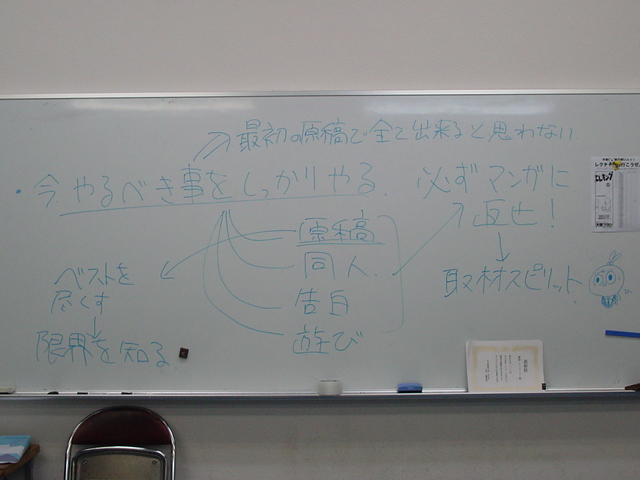 最初の原稿で全て出来ると思わない
・今やるべき事をしっかりやる
必ずマンガに
返せ!
原稿
同人
告白
遊び
ベストを
尽くす
限界を知る
取材スピリット